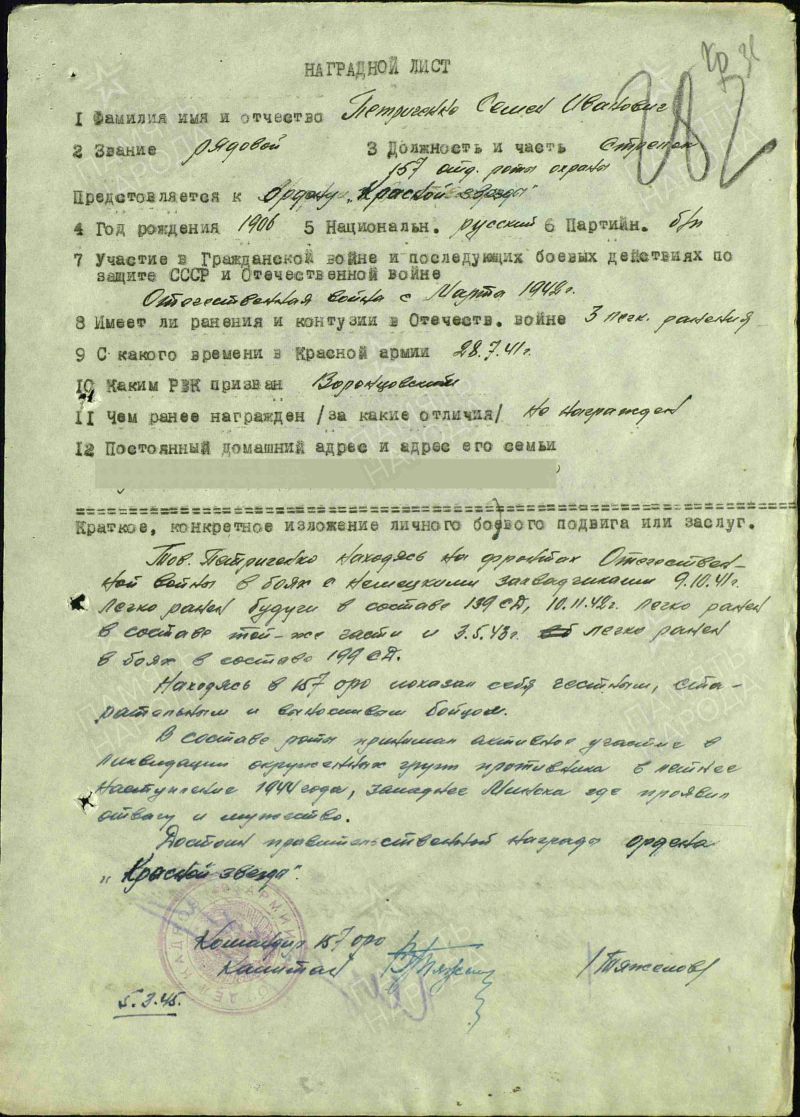 НАГРАДНОЙ ЛИСТ
1 Фамилия имя и отчество Петриченко Семен Иванович
2 Звание рядовой 3 Должность и часть Стрелок
157 отд. роты охраны
Предстовляется к Ордену „Красной звезды"
4 Год рождения 1906 5 Националън. русский 6 Партийн. б/п
7 Участие в Гражданской войне и последующих боевых действиях по
защите СССР и Отечественной войне
Отечественная война с Марта 1942г.
8 Имеет ли ранения и контузии в Отечеств. войне 3 легк. ранения
9 С какого времени в Красной армии 28.7.41г.
10 Каким РВК призван Воронцовский
11 Чем ранее награжден /за какие отличия/ Не награжден
12 Постоянный домашний адрес и адрес его семьи
Краткое, конкретное изложение личного боевого подвига или заслуг.
Тов. Петриченко находясь на фронтах Отечествен-
ной войны в боях с немецкими захватчиками 9.10.41г.
легко ранен будучи в составе 139 СД, 10.11.42г. легко ранен
в составе той-же части и 3.5.43г. легко ранен
в боях в составе 199 СД.
Находясь в 157 оро показал себя честным, ста-
рательным и выносливым бойцом.
В составе роты принимал активное участие в
ликвидации окруженных групп противника в летнее
наступление 1944 года, западнее Минска где проявил
отвагу и мужество.
Достоин правительственной награды ордена
„Красной звезды".
Командир 157 оро
Капитан /Тяжелов/
5.3.45.